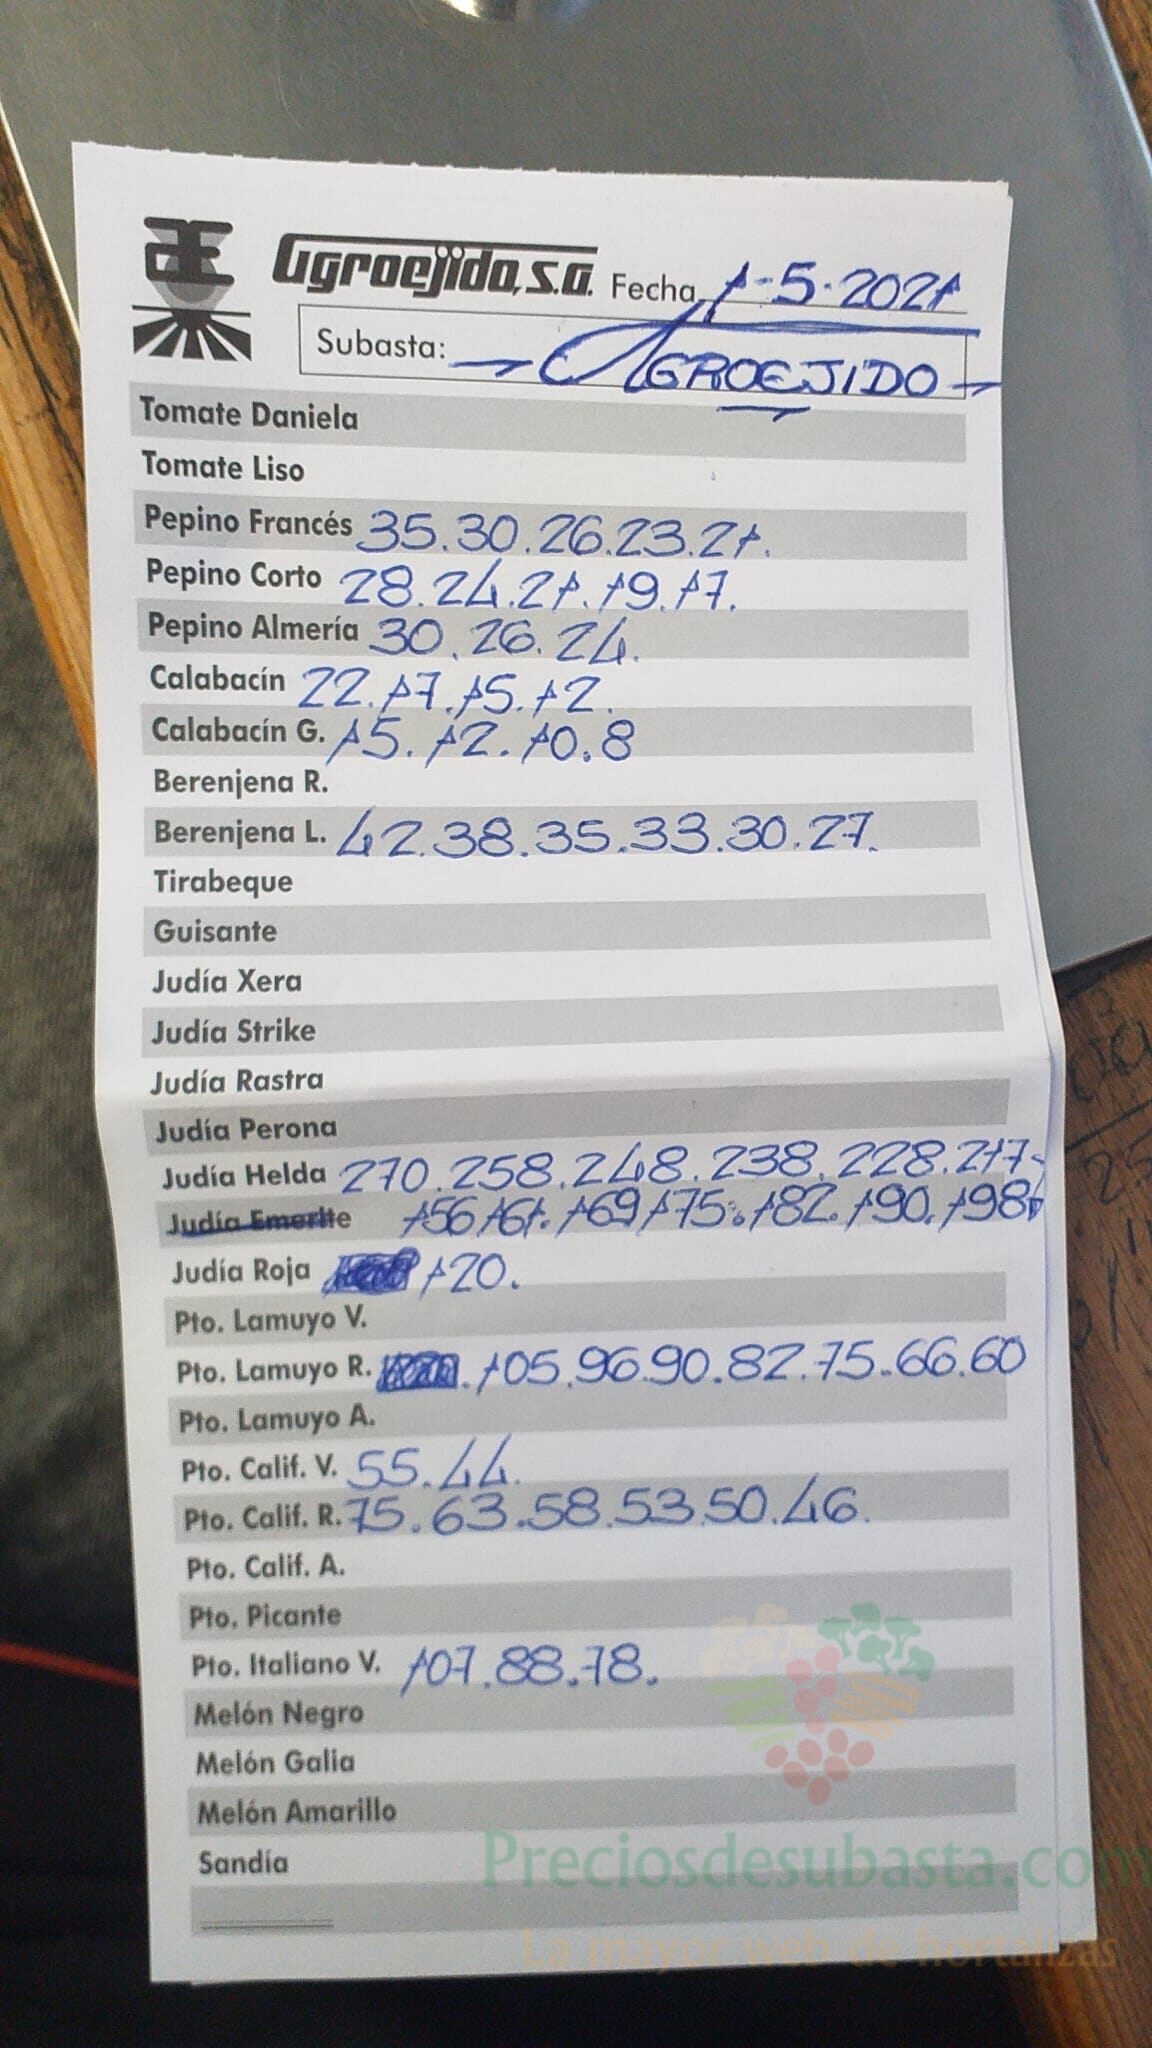 Agroejido, S.A. Fecha 1-5-2021
Subasta: - AGROEJIDO -
Tomate Daniela
Tomate Liso
Pepino Francés 35.30.26.23.21.
Pepino Corto 28.24.21.19.17.
Pepino Almería 30.26.24.
Calabacín 22.17.15.12.
Calabacín G. 15.12.10.8
Berenjena R.
Berenjena L. 42.38.35.33.30.27.
Tirabeque
Guisante
Judía Xera
Judía Strike
Judía Rastra
Judía Perona
Judía Helda 270.258.248.238.228.217-
Judía Emerite 156 161. 169 175. 182. 190. 198
Judía Roja 120.
Pto. Lamuyo V.
Pto. Lamuyo R. 105.96.90.82.75.66.60
Pto. Lamuyo A.
Pto. Calif. V. 55.44.
Pto. Calif. R. 75.63.58.53.50.46.
Pto. Calif. A.
Pto. Picante
Pto. Italiano V. 107.88.78.
Melón Negro
Melón Galia
Melón Amarillo
Sandía
Preciosdesubasta.com
La mayor web de hortalizas